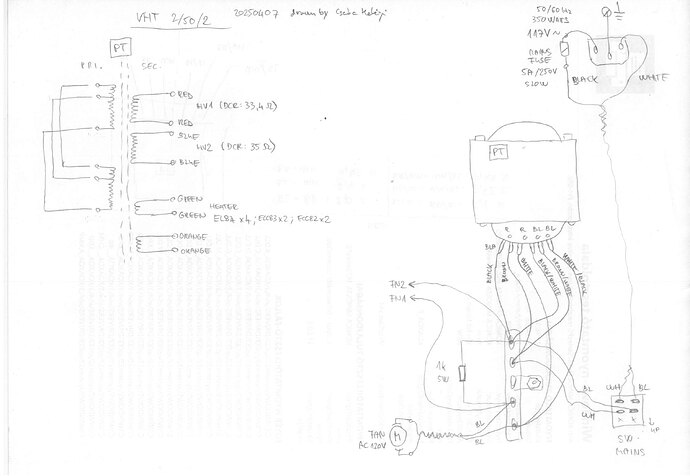 VHT 2/50/2 20250407 drawn by
PT
PRI. SEC.
RED
HV1 (DCR: 33,4 Ω)
RED
BLUE
HV2 (DCR: 35 Ω)
BLUE
GREEN
HEATER
GREEN EL84 x 4 ; ECC83 x 2 ; ECC82 x 2
ORANGE
ORANGE
50/60 Hz
350 WATTS
117V ~
MAINS
FUSE
5A/250V
SLOW
BLACK
WHITE
PT
R R BL BL
BLA
BLACK
BROWN
WHITE
BLACK/WHITE
BROWN/WHITE
WHITE/BLACK
FN2
FN1
1k
5W
FAN
AC 120V
M
BL
BL
BL
WH
WH BL
UP
SW
MAINS